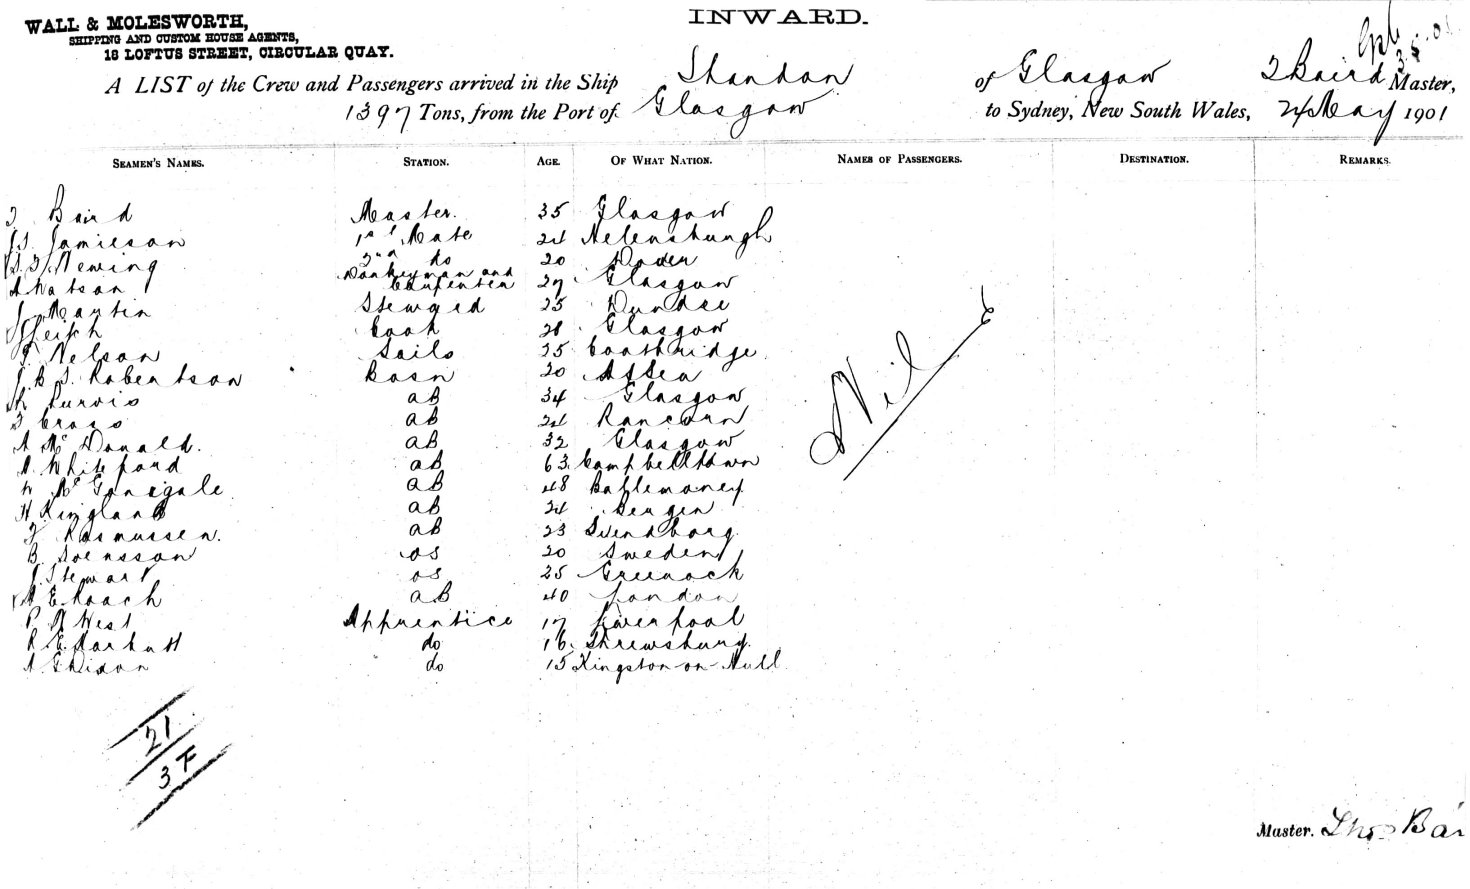 WALL & MOLESWORTH,
SHIPPING AND CUSTOM HOUSE AGENTS,
18 LOFTUS STREET, CIRCULAR QUAY.
INWARD.
A LIST of the Crew and Passengers arrived in the Ship Shandon of Glasgow T Baird Master,
1397 Tons, from the Port of Glasgow to Sydney, New South Wales, 2 May 1901
SEAMEN'S NAMES. STATION. AGE. OF WHAT NATION. NAMES OF PASSENGERS. DESTINATION. REMARKS.
T Baird Master. 35 Glasgow
Jamieson 1st Mate 24 Helensburgh
Newing 2nd do 20 Dover
A Watson Donkeyman and Carpenter 27 Glasgow
J Martin Steward 25 Dundee
Leith Cook 28 Glasgow
F Nelson Sails 25 Coatbridge
J. B. S. Robertson Bosn 20 At Sea
Purvis aB 34 Glasgow
T Cross aB 24 Rancorn
A McDonald. aB 32 Glasgow
A Whiteford aB 63 Campbelltown
McGonigale aB 48 Ballemoney
H Ringland aB 24 Bergen
Rasmussen. aB 23 Svendborg
B. Soensson os 20 Sweden
J Stewart os 25 Greenock
A E Roach aB 40 London
P. A West Apprentice 17 Liverpool
R E. do 16 Shrewsbury.
A. do 15 Kingston-on-Hull
Nil
21
3 F
Master. Thos Bai